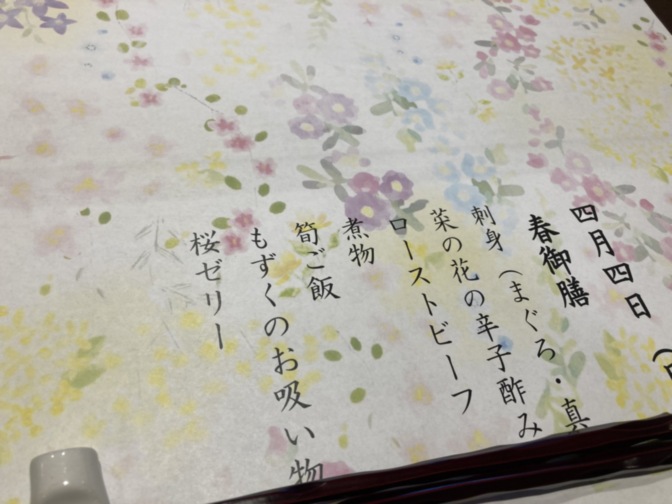 四月四日（
春御膳
刺身（まぐろ・真
菜の花の辛子酢み
ローストビーフ
煮物
筍ご飯
もずくのお吸い物
桜ゼリー